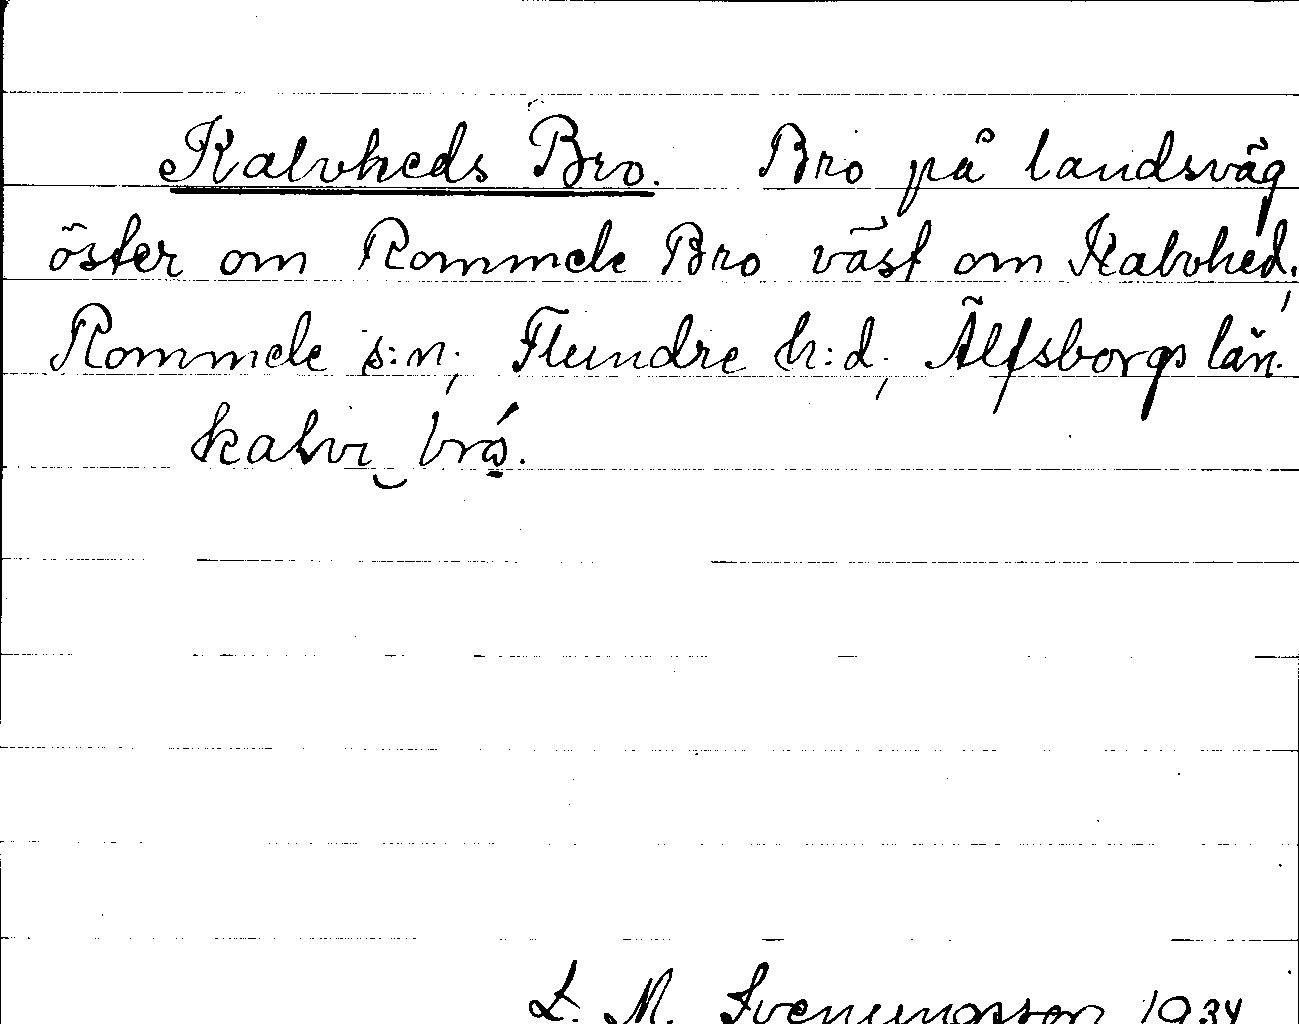 Kalvheds Bro. Bro på landsväg
öster om Rommele Bro väst om Kalvhed;
Rommele s:n; Flundre h:d; Älfsborgs län.
kalvi bró.
L. M. Svenungsson 1934